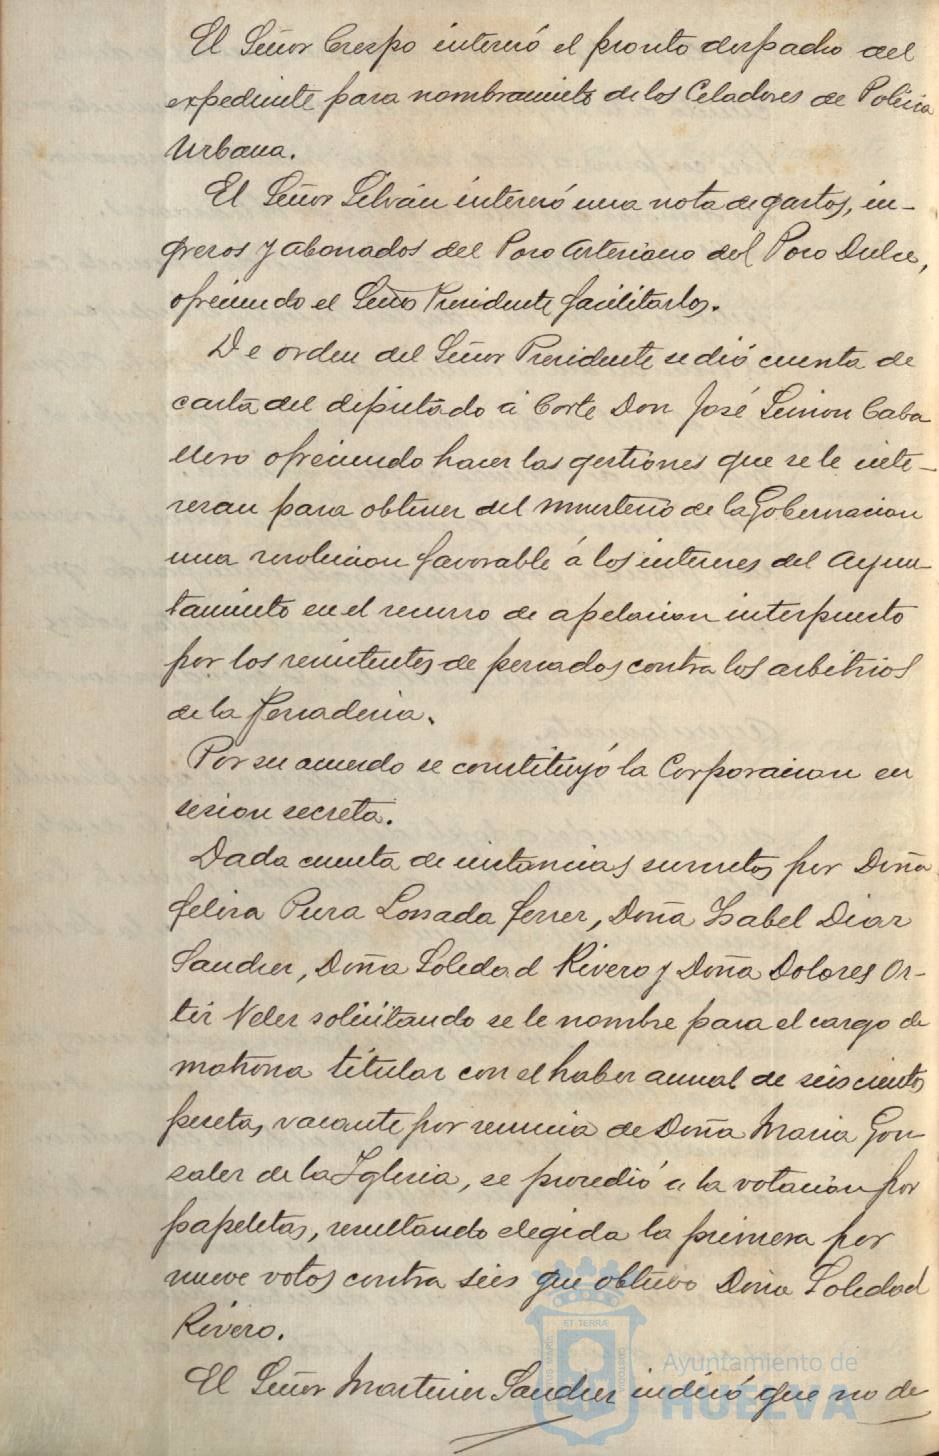 El Señor Crespo interesó el pronto despacho del
expediente para nombramiento de los Celadores de Policia
Urbana.
El Señor Silván interesó una nota de gastos, in-
gresos y abonados del Pozo Artesiano del Pozo Dulce,
ofreciendo el Señor Presidente facilitarlos.
De orden del Señor Presidente se dió cuenta de
carta del diputado á Corte Don José Limon Caba
llero ofreciendo hacer las gestiones que se le inte-
resan para obtener del ministerio de la Gobernacion
una resolucion favorable á los intereses del Ayun-
tamiento en el recurso de apelacion interpuesto
por los remitentes de pescados contra los arbitrios
de la Pescaderia.
Por su acuerdo se constituyó la Corporacion en
sesion secreta.
Dada cuenta de instancias suscritas por Doña
Felisa Pura Losada Ferrer, Doña Isabel Diaz
Sanchez, Doña Soledad Rivero y Doña Dolores Or-
tiz Velez solicitando se le nombre para el cargo de
matrona titular con el haber annual de seiscientos
pesetas, vacante por renuncia de Doña Maria Gon
zalez de la Iglesia, se procedió a la votacion por
papeletas, resultando elegida la primera por
nueve votos contra seis que obtuvo Doña Soledad
Rivero.
El Señor Martinez Sanchez indicó que no de
ET TERRÆ
Ayuntamiento de
HUELVA